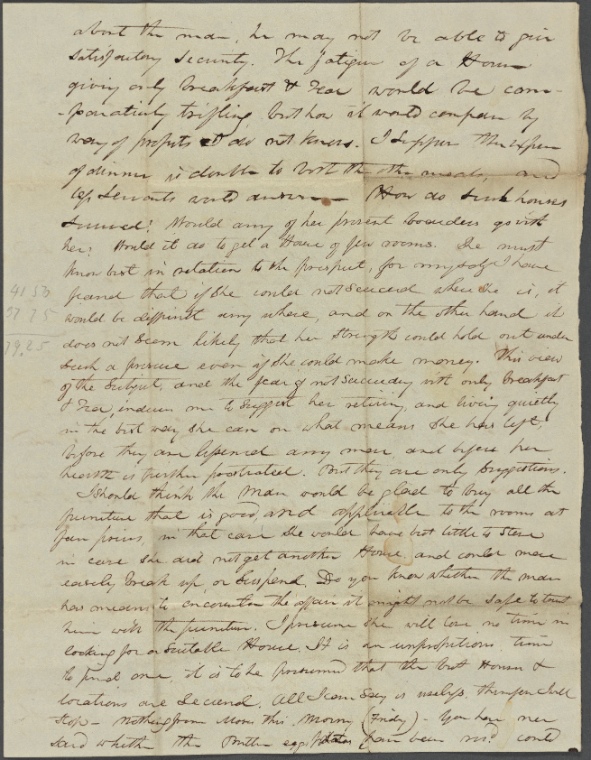 about the man, he may not be able to give
satisfactory security. The fatigue of a House
giving only breakfast & Tea would be com-
-paratively trifling, but how it would compare by
way of profits I do not know. I suppose the expense
of dinner is double to both the other meals, and
less servants would answer — How do such houses
succeed? Would any of her present boarders go with
her? Would it do to get a House of few rooms. She must
know best in relation to the prospect, for myself I have
feared that if she could not succeed where she is, it
would be difficult any where, and on the other hand it
does not seem likely that her strength could hold out under
such a pressure even if she could make money. This view
of the subject, and the fear of not succeeding with only breakfast
& Tea, induces me to suggest her retiring, and living quietly
in the best way she can on what means she has left,
before they are lessened any more, and before her
health is further prostrated. But they are only suggestions.
I should think the man would be glad to buy all the
furniture that is good, and applicable to the rooms at
fair prices, in that case she would have but little to store
in case she did not get another House, and could more
easily break up, or suspend. Do you know whether the man
has means to encounter the affair it might not be safe to trust
him with the furniture. I presume she will lose no time in
looking for a suitable House. It is an unpropitious time
to find one, it is to be presumed that the best Houses &
locations are secured. All I can say is useless, therefore I will
stop — nothing from Mom this morning (Friday) — You have never
said whether the Butter eggs have been recd. could
41 50
37 75
79.25